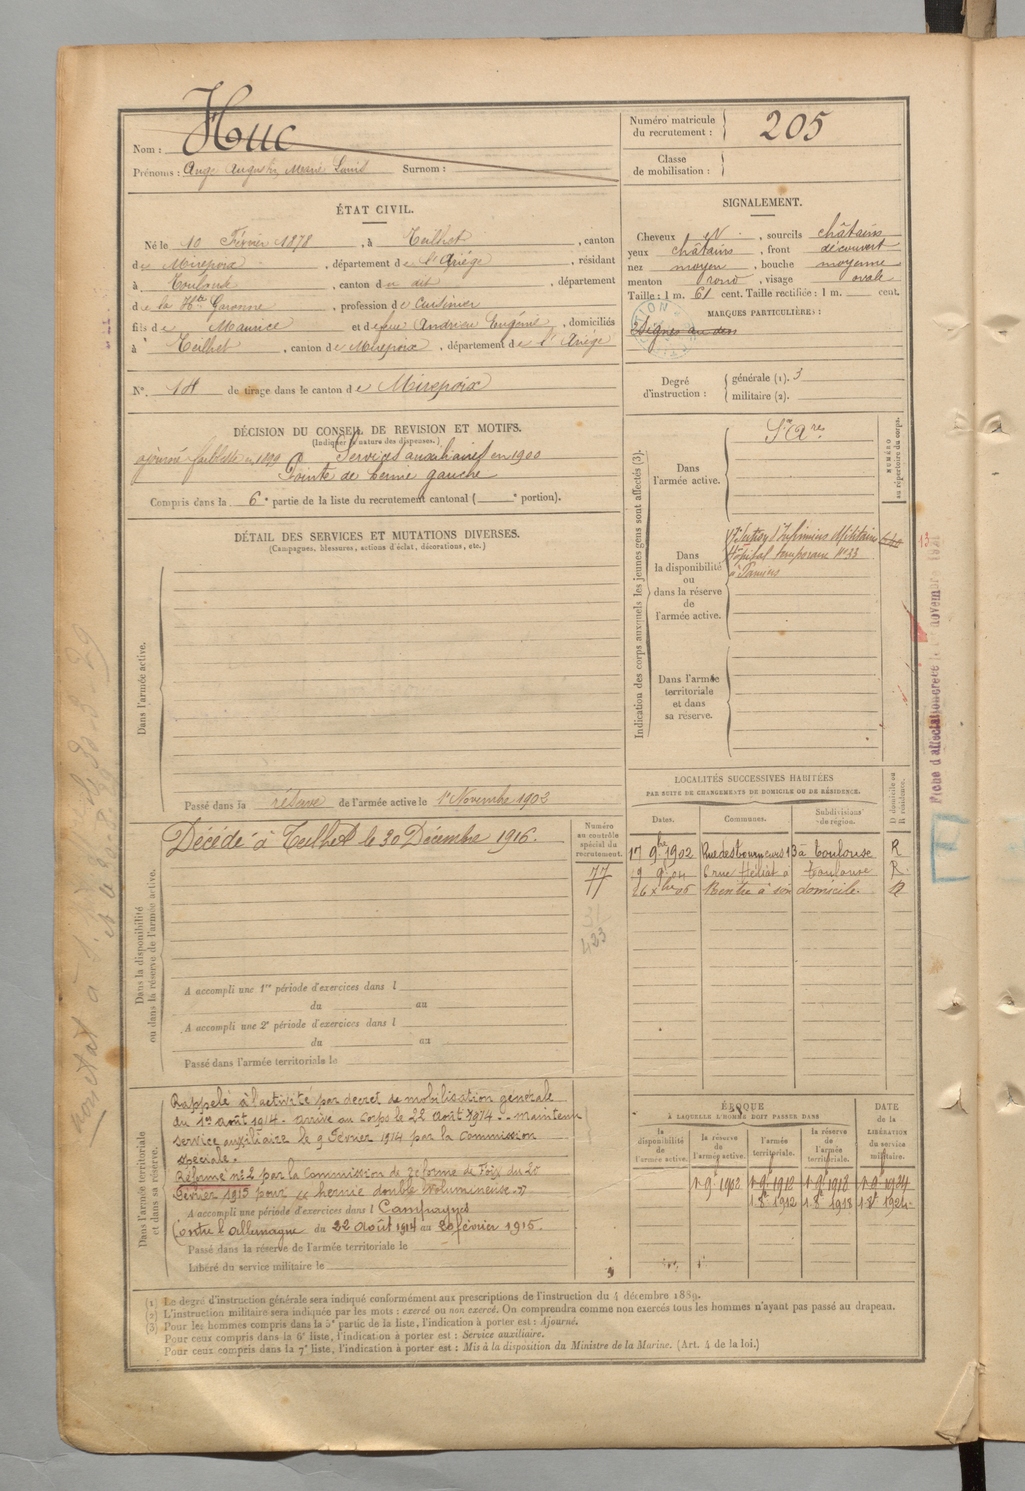 Nom : Huc
Prénoms : Ange Auguste Marie Louis Surnom :
Numéro matricule du recrutement : 205
Classe de mobilisation :
ÉTAT CIVIL.
Né le 10 Février 1878, à Teilhet, canton
de Mirepoix, département de l'Ariège, résidant
à Toulouse, canton du dit, département
de la Hte Garonne, profession de Cuisinier
fils de Maurice et de feu Andrieu Eugénie, domiciliés
à Teilhet, canton de Mirepoix, département de l'Ariège
N° 14 de tirage dans le canton de Mirepoix
SIGNALEMENT.
Cheveux N, sourcils châtains
yeux châtains, front découvert
nez moyen, bouche moyenne
menton rond, visage ovale
Taille : 1 m. 61 cent. Taille rectifiée : 1 m. cent.
MARQUES PARTICULIÈRES :
Degré d'instruction : générale (1). 3
militaire (2).
DÉCISION DU CONSEIL DE REVISION ET MOTIFS.
(Indiquer la nature des dispenses.)
ajourné faiblesse en 1899 Services auxiliaires en 1900
Pointe de hernie gauche
Compris dans la 6e partie de la liste du recrutement cantonal ( e portion).
DÉTAIL DES SERVICES ET MUTATIONS DIVERSES.
(Campagnes, blessures, actions d'éclat, décorations, etc.)
Dans l'armée active.
Passé dans la réserve de l'armée active le 1er Novembre 1902
Indication des corps auxquels les jeunes gens sont affectés (3).
NUMÉRO au répertoire du corps.
Dans l'armée active.
Dans la disponibilité ou dans la réserve de l'armée active.
Section d'Infirmiers Militaires
Hôpital temporaire N° 23
à Pamiers
Dans l'armée territoriale et dans sa réserve.
Fiche d'affectation créée le novembre
Dans la disponibilité ou dans la réserve de l'armée active.
Décédé à Teilhet le 30 Décembre 1916.
Numéro au contrôle spécial du recrutement.
77
423
A accompli une 1re période d'exercices dans l
du au
A accompli une 2e période d'exercices dans l
du au
Passé dans l'armée territoriale le
LOCALITÉS SUCCESSIVES HABITÉES
PAR SUITE DE CHANGEMENTS DE DOMICILE OU DE RÉSIDENCE.
D domicile ou R résidence.
Dates. Communes. Subdivisions de région.
17 9bre 1902 Rue des tourneurs 13 à Toulouse R
9 9bre 04 6 rue Héliot à Toulouse R.
6 xbre 06 Rentré à son domicile. R
Dans l'armée territoriale et dans sa réserve.
Rappelé à l'activité par décret de mobilisation générale
du 1er août 1914. arrivé au corps le 22 août 1914. maintenu
service auxiliaire le 9 Février 1914 par la Commission
spéciale.
Réformé n° 2 par la Commission de réforme de Foix du 20
Février 1915 pour « hernie double volumineuse »
A accompli une période d'exercices dans l Campagnes
Contre l'Allemagne du 22 août 1914 au 20 février 1915.
Passé dans la réserve de l'armée territoriale le
Libéré du service militaire le
ÉPOQUE
À LAQUELLE L'HOMME DOIT PASSER DANS
DATE de la LIBÉRATION du service militaire.
la disponibilité de l'armée active. la réserve de l'armée active. l'armée territoriale. la réserve de l'armée territoriale.
1 9e 1902 1 9e 1912 1 9e 1918 1 9e 1924
1 8e 1912 1 8e 1918 1 8e 1924.
(1) Le degré d'instruction générale sera indiqué conformément aux prescriptions de l'instruction du 4 décembre 1889.
(2) L'instruction militaire sera indiquée par les mots : exercé ou non exercé. On comprendra comme non exercés tous les hommes n'ayant pas passé au drapeau.
(3) Pour les hommes compris dans la 5e partie de la liste, l'indication à porter est : Ajourné.
Pour ceux compris dans la 6e liste, l'indication à porter est : Service auxiliaire.
Pour ceux compris dans la 7e liste, l'indication à porter est : Mis à la disposition du Ministre de la Marine. (Art. 4 de la loi.)